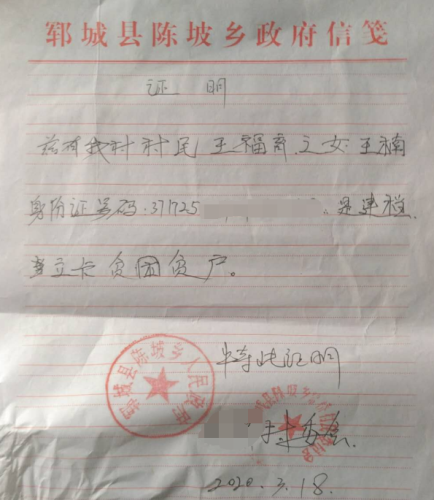 郓城县陈坡乡政府信笺
证 明
兹有我村村民王福育之女王楠
身份证号码:371725 。是建档
立卡贫困户。
特此证明
郓城县陈坡乡人民政府
村委会
2020.3.18.